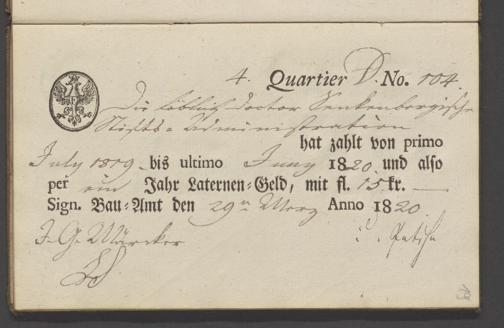 4. Quartier D. No. 104.
Die löbliche Doctor Senkenbergische
Stifts-Administration
hat zahlt von primo
July 1819. bis ultimo Juny 1820. und also
per ein Jahr Laternen-Geld, mit fl. 15 kr.
Sign. Bau-Amt den 29n Merz Anno 1820.
J. G. Märcker